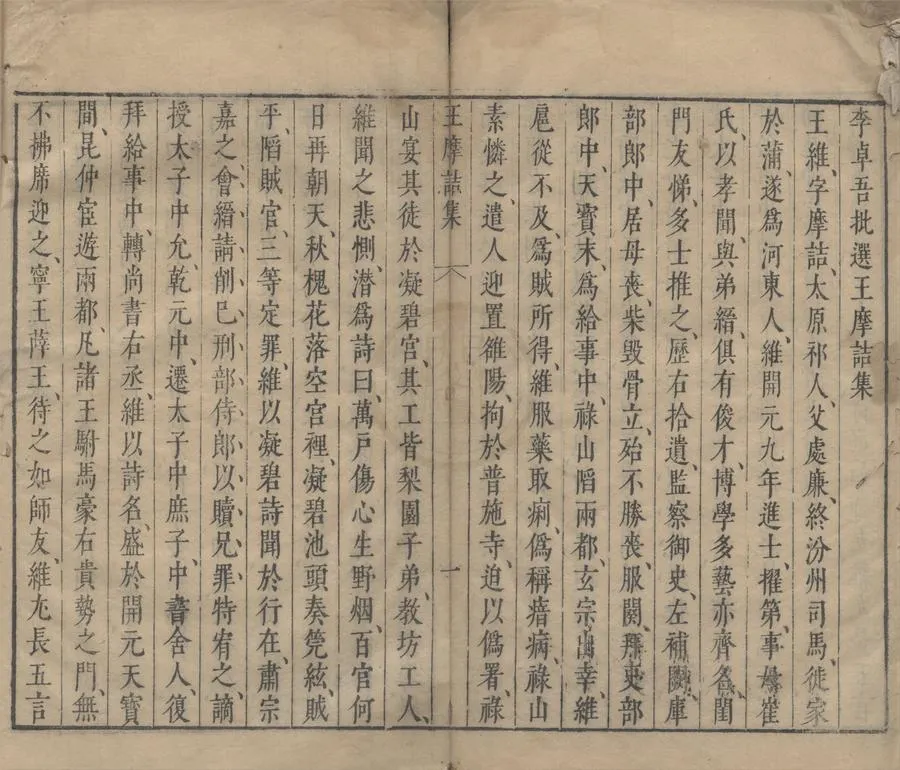 李卓吾批選王摩詰集
王維、字摩詰、太原祁人、父處廉、終汾州司馬、徙家
於蒲、遂為河東人、維開元九年進士、擢第、事母崔
氏、以孝聞、與弟縉、俱有俊才、博學多藝亦齊名、閨
門友悌、多士推之、歷右拾遺、監察御史、左補闕、庫
部郎中、居母喪、柴毀骨立、殆不勝喪、服闋、拜吏部
郎中、天寶末、為給事中、祿山陷兩都、玄宗出幸、維
扈從不及、為賊所得、維服藥取痢、偽稱瘖病、祿山
素憐之、遣人迎置雒陽、拘於普施寺、迫以偽署、祿
王摩詰集 一
山宴其徒於凝碧宮、其工皆梨園子弟、教坊工人、
維聞之悲惻、潛為詩曰、萬戶傷心生野烟、百官何
日再朝天、秋槐花落空宮裡、凝碧池頭奏筦絃、賊
平、陷賊官、三等定罪、維以凝碧詩聞於行在、肅宗
嘉之、會縉請削己刑部侍郎以贖兄罪、特宥之、謫
授太子中允、乾元中、遷太子中庶子、中書舍人、復
拜給事中、轉尚書右丞、維以詩名、盛於開元天寶
間、昆仲宦遊兩都、凡諸王駙馬豪右貴勢之門、無
不拂席迎之、寧王薛王、待之如師友、維尤長五言